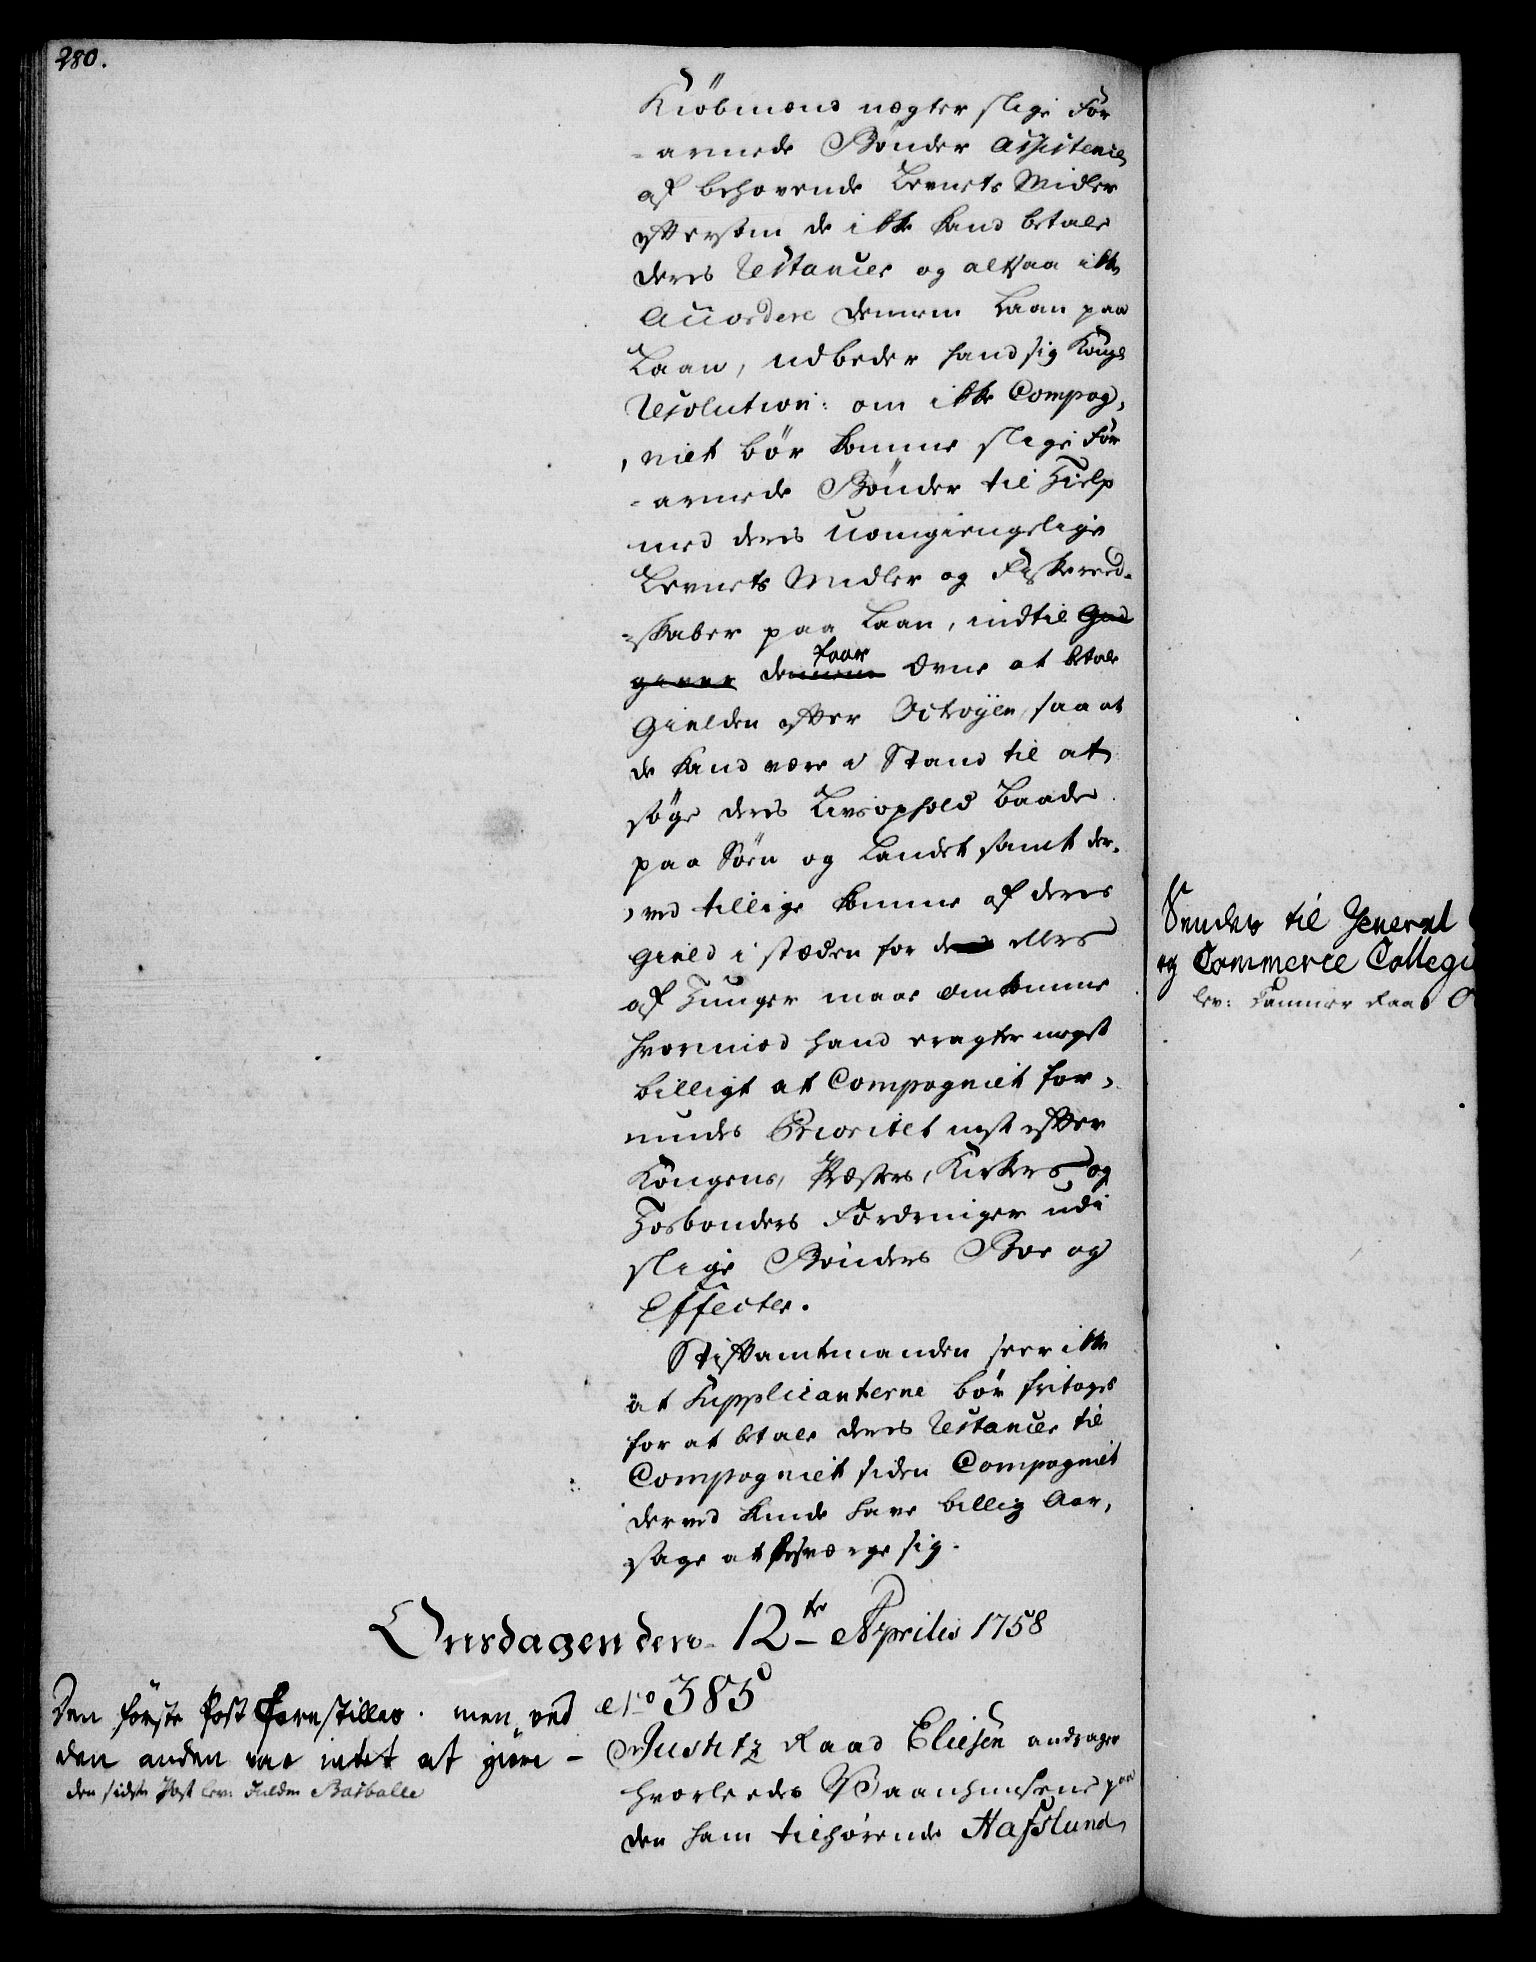 280.
Kiöbmænd nægter slige For
-armede Bønder Assistence
af behøvende Levnets Midler
eftersom de ikke kand betale
deres Restancer og altsaa ikke
Accordere dennem Laan paa
Laan, udbeder hand sig Kongl
Resolution: om ikke Compag,
,niet bör komme slige For
-armede Bönder til Hielp
med deres uomgiengelige
Levnets Midler og Fiskereed-
=skaber paa Laan, indtil Gud
giver dennem faar Evne at betale
Gielden efter Octroyen, saa at
de kand være i Stand til at
söge deres Livsophold baade
paa Söen og Landet samt der,
,ved tillige komme af deres
Gield i stæden for de ellers
af Hunger maae omkomme
hvorimod hand eragter meget
billigt at Compagniet for,
undes Prioritet nest efter
Kongens, Præstes, Kirkes og
Hosbonders Fordringer udi
slige Bönders Boe og
Effecter.
Stiftamtmanden seer ikke
at Supplicanterne bör fritages
for at betale deres Restancer til
Compagniet siden Compagniet
derved kunde have billig Aar,
sage at besværge sig.
Sendes til General
og Commerce Collegi
lev: Cammer Raad
Onsdagen den 12te Aprilis 1758
Den förste Post forestilles. men ved
den anden var intet at giöre -
den sidste Post lev: Balballe
No 385
Justitz Raad Eliesen andrager
hvorleedes Vaanhusene paa
den ham tilhørende Hafslund